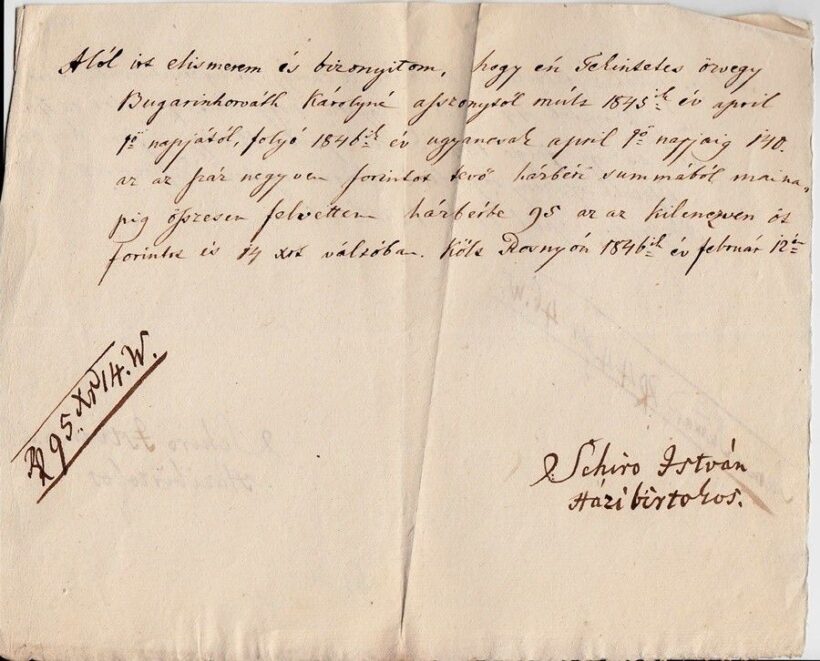 Alól irt elismerem és bizonyitom, hogy én Tekintetes özvegy
Bugarinhorváth Károlyné asszonytól múlt 1845ik év april
1ő napjától, folyó 1846ik év ugyancsak april 1ő napjaig 140.
az az száz negyven forintot tevő hárbéri summából maina,
pig összesen felvettem hárbérbe 95 az az kilenczven öt
forintot és 14 xrt váltóban. Költ Rosnyón 1846ik év február 12én
Rf 95. Xr 14. W.
Schiro István
Házibirtokos.